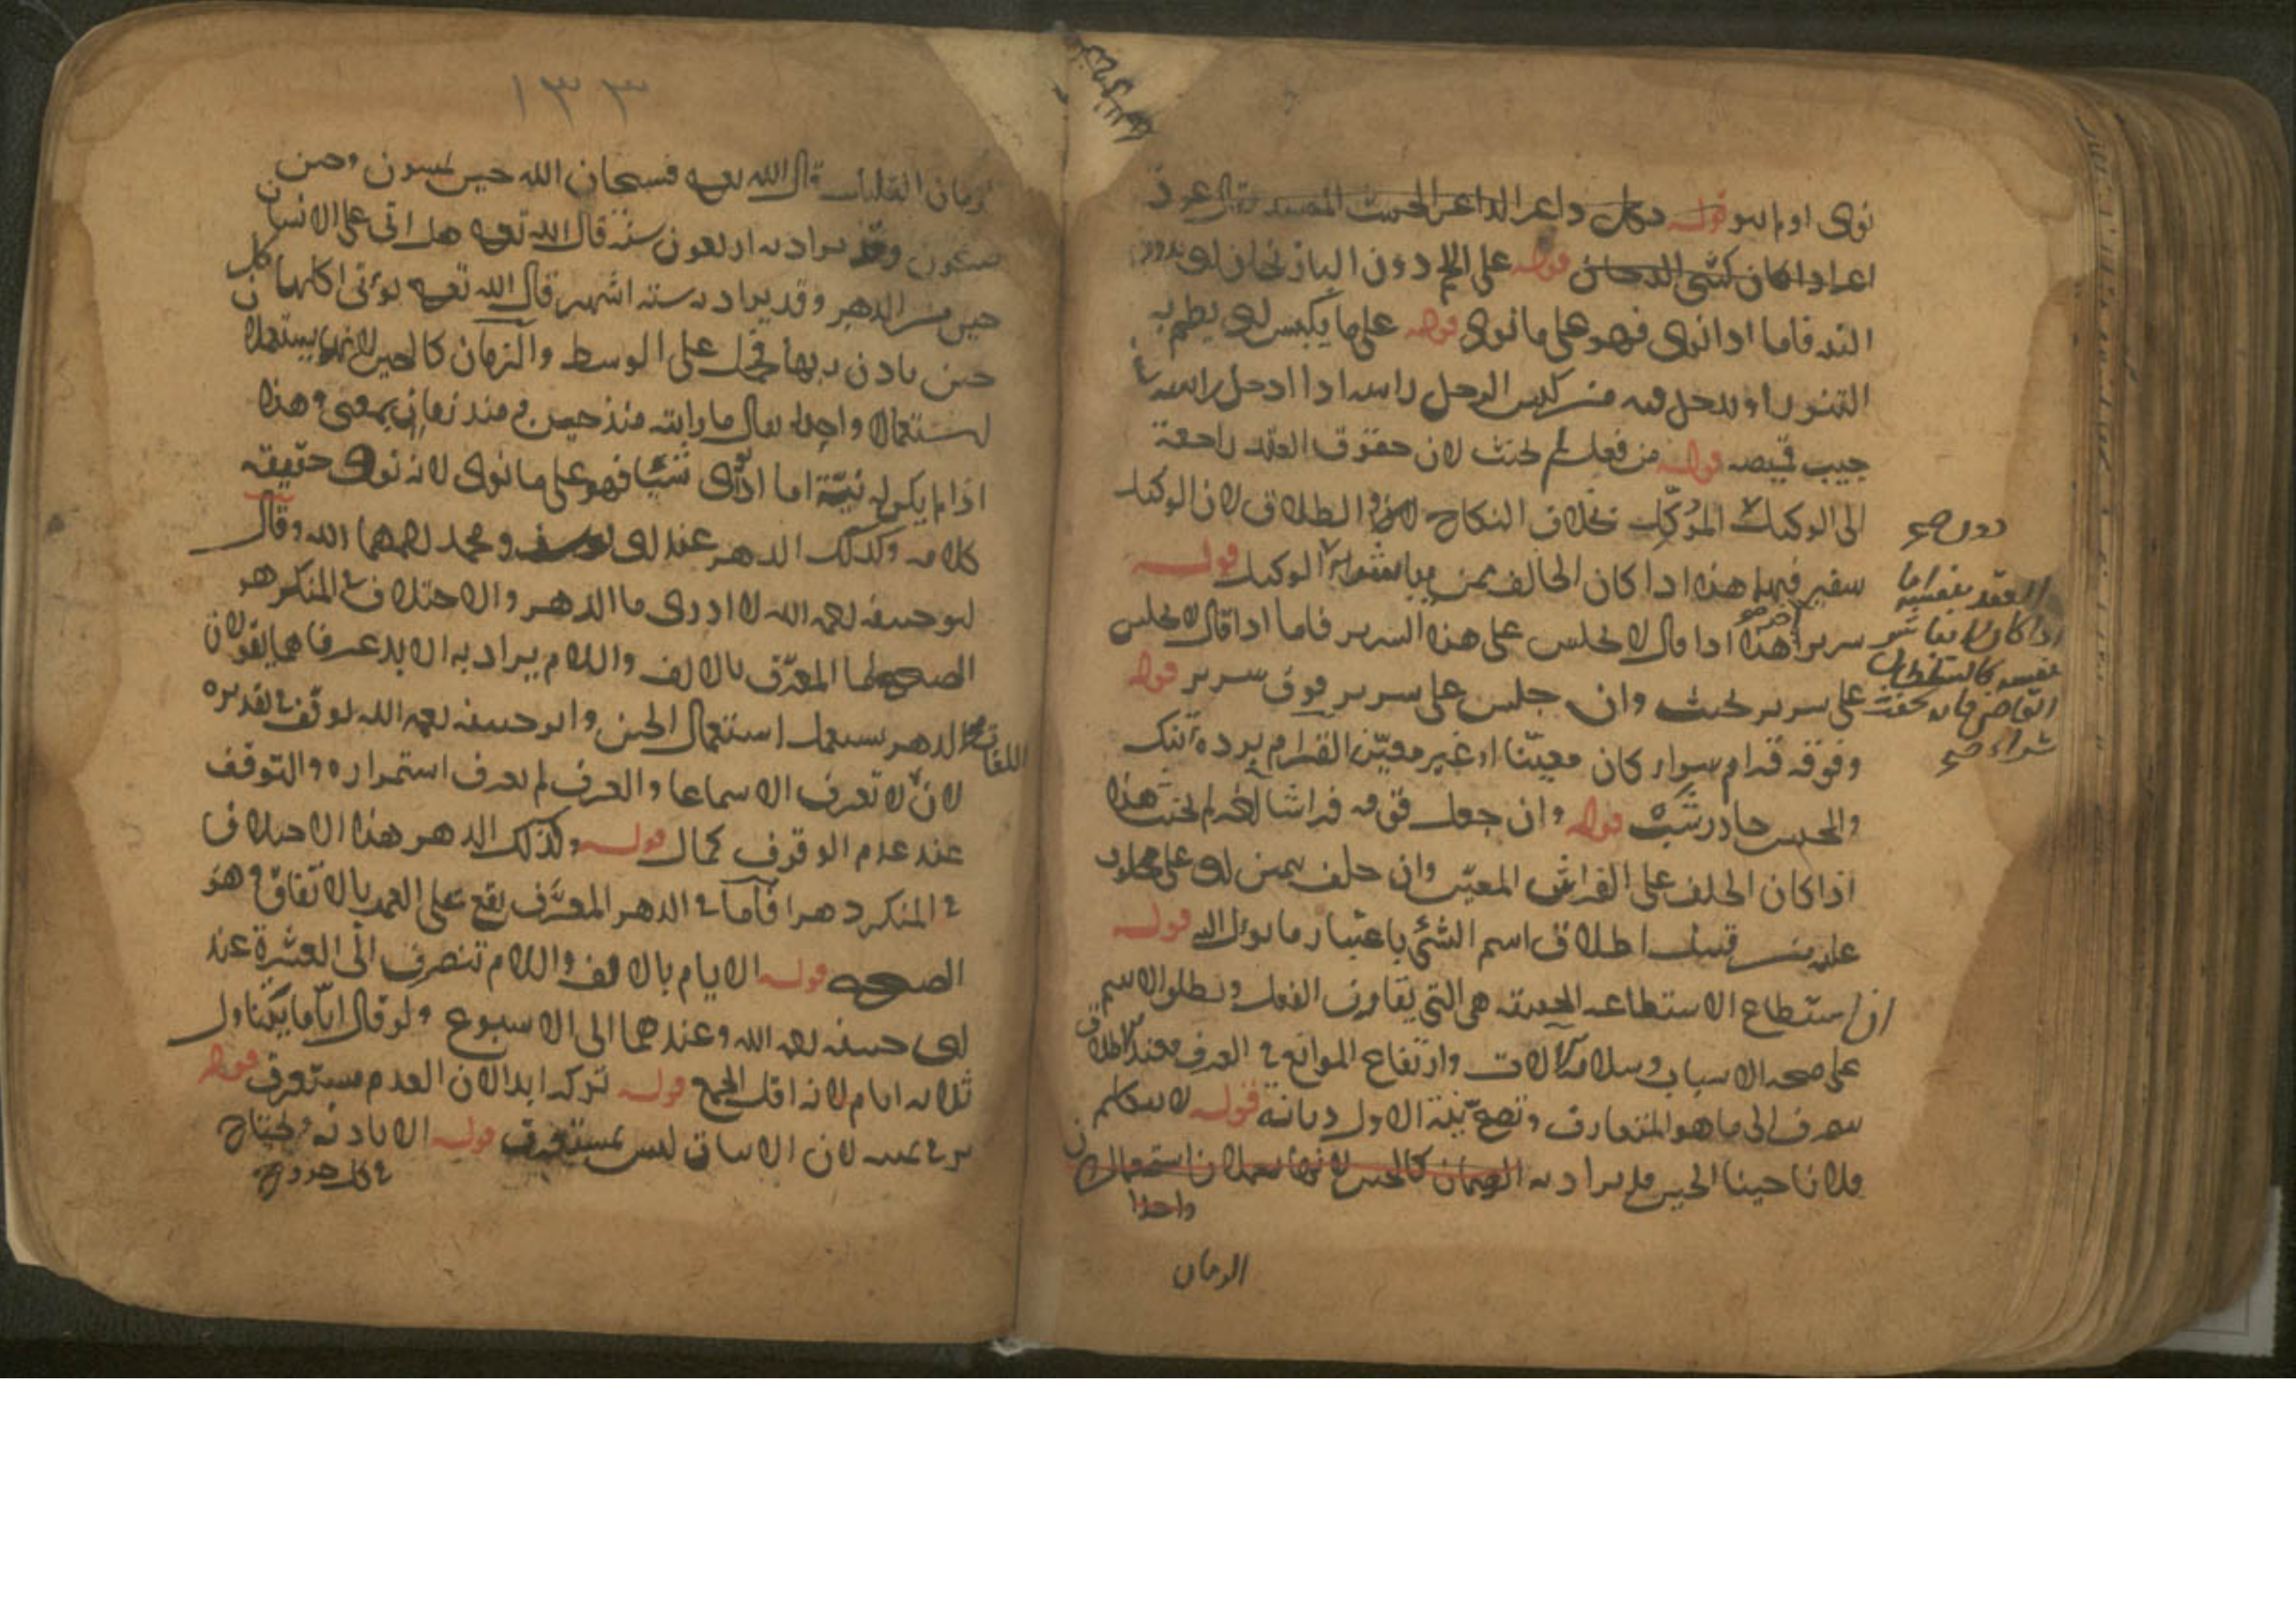 نوى او لم ينو قوله وكل داعر الداعر الخبيث المفسد يقال عود
اعر اذا كان كثير الدخان قوله على اللحم دون الباذنجان اي بدون
النية فاما اذا نوى فهو على ما نوى قوله على ما يكبس اي يطم به
التنور او يدخل فيه من كبس الرجل راسه اذا ادخل راسه في
جيب قميصه قوله من فعل لم يحنث لان حقوق العقد راجعة
الى الوكيل لا المؤكّل بخلاف النكاح والطلاق لان الوكيل
سفير فيهما هذا اذا كان الحالف ممن يباشر الوكيل قوله
سرير آخر هذا اذا قال لا يجلس على هذا السرير فاما اذا قال لا يجلس
على سرير يحنث وان جلس على سرير فوق سرير قوله
وفوقه قرام سواء كان معيّنا او غير معيّن القرام پرده تنك
والمحبس چادرشب قوله وان جعل فوقه فراشا آخر لم يحنث هذا
اذا كان الحلف على الفراش المعيّن وان حلف بيمين اي على محلوف
عليه من قبيل اطلاق اسم الشئ باعتبار ما يؤل اليه قوله
ان استطاع الاستطاعة الحقيقية هي التي تقارن الفعل ويطلق الاسم
على صحة الاسباب وسلامة الالات وارتفاع الموانع في العرف فعند الاطلاق
يصرف الى ما هو المتعارف وتصح نية الاول ديانة قوله لا يكلم
فلانا حينا الحين قد يراد به الزمان كالحين لانهما يستعملان استعمالا
واحدا
الزمان
دون صح
العقد بنفسه اما
اذا كان لا يباشر
بنفسه كالسلطان
القاضي فانه يحنث
شراء صح
١٣٣
الزمان القليل قال الله تعالى فسبحان الله حين تمسون وحين
تصبحون وقد يراد به اربعون سنة قال الله تعالى هل اتى على الانسان
حين من الدهر وقد يراد به ستة اشهر قال الله تعالى تؤتى اكلها كل
حين باذن ربها فحمل على الوسط والزمان كالحين لانهما يستعملان
استعمالا واحدا يقال ما رايته منذ حين ومنذ زمان بمعنى وهذا
اذا لم يكن له نيّة اما اذا نوى شيئا فهو على ما نوى لانه نوى حقيقة
كلامه وكذلك الدهر عند ابي يوسف ومحمد رحمهما الله وقال
ابو حنيفة رحمه الله لا ادرى ما الدهر والاختلاف في المنكر هو
الصحيح اما المعرّف بالالف واللام يراد به الابد عرفا هما يقولان
الدهر يستعمل استعمال الحين وابو حنيفة رحمه الله توقف في تقديره
لان اللغات لا تعرف الا سماعا والعرف لم يعرف استمراره والتوقف
عند عدم الوقوف كمال قوله وكذلك الدهر هذا الاختلاف
في المنكر دهرا فاما في الدهر المعرّف يقع على العمر بالاتفاق وهو
الصحيح قوله الايام بالالف واللام تنصرف الى العشرة عند
ابي حنيفة رحمه الله وعندهما الى الاسبوع ولو قال ايّاما يتناول
ثلاثة ايام لانه اقل الجمع قوله تركه ابدا لان العدم مستغرق قوله
بر في يمينه لان الاثبات ليس بمستغرق قوله الا باذنه يحتاج
في كل خروج